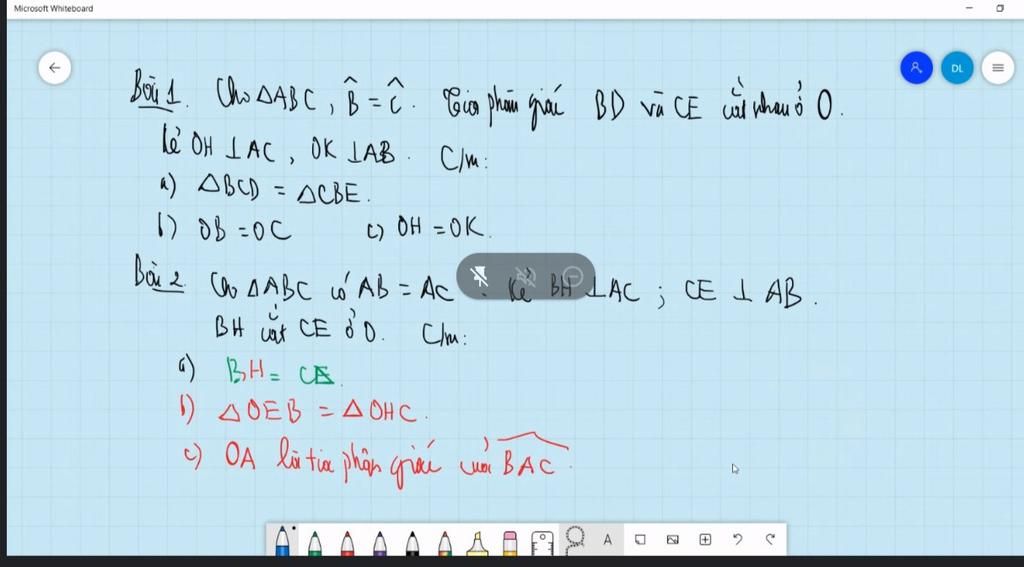 Microsoft Whiteboard
DL
Bài 1. Cho △ABC, B̂ = Ĉ. Tia phân giác BD và CE cắt nhau ở O.
Kẻ OH ⊥ AC, OK ⊥ AB. C/m:
a) △BCD = △CBE.
b) OB = OC c) OH = OK.
Bài 2. Cho △ABC có AB = AC. Kẻ BH ⊥ AC ; CE ⊥ AB.
BH cắt CE ở O. C/m:
a) BH = CE.
b) △OEB = △OHC.
c) OA là tia phân giác của BAC.
A